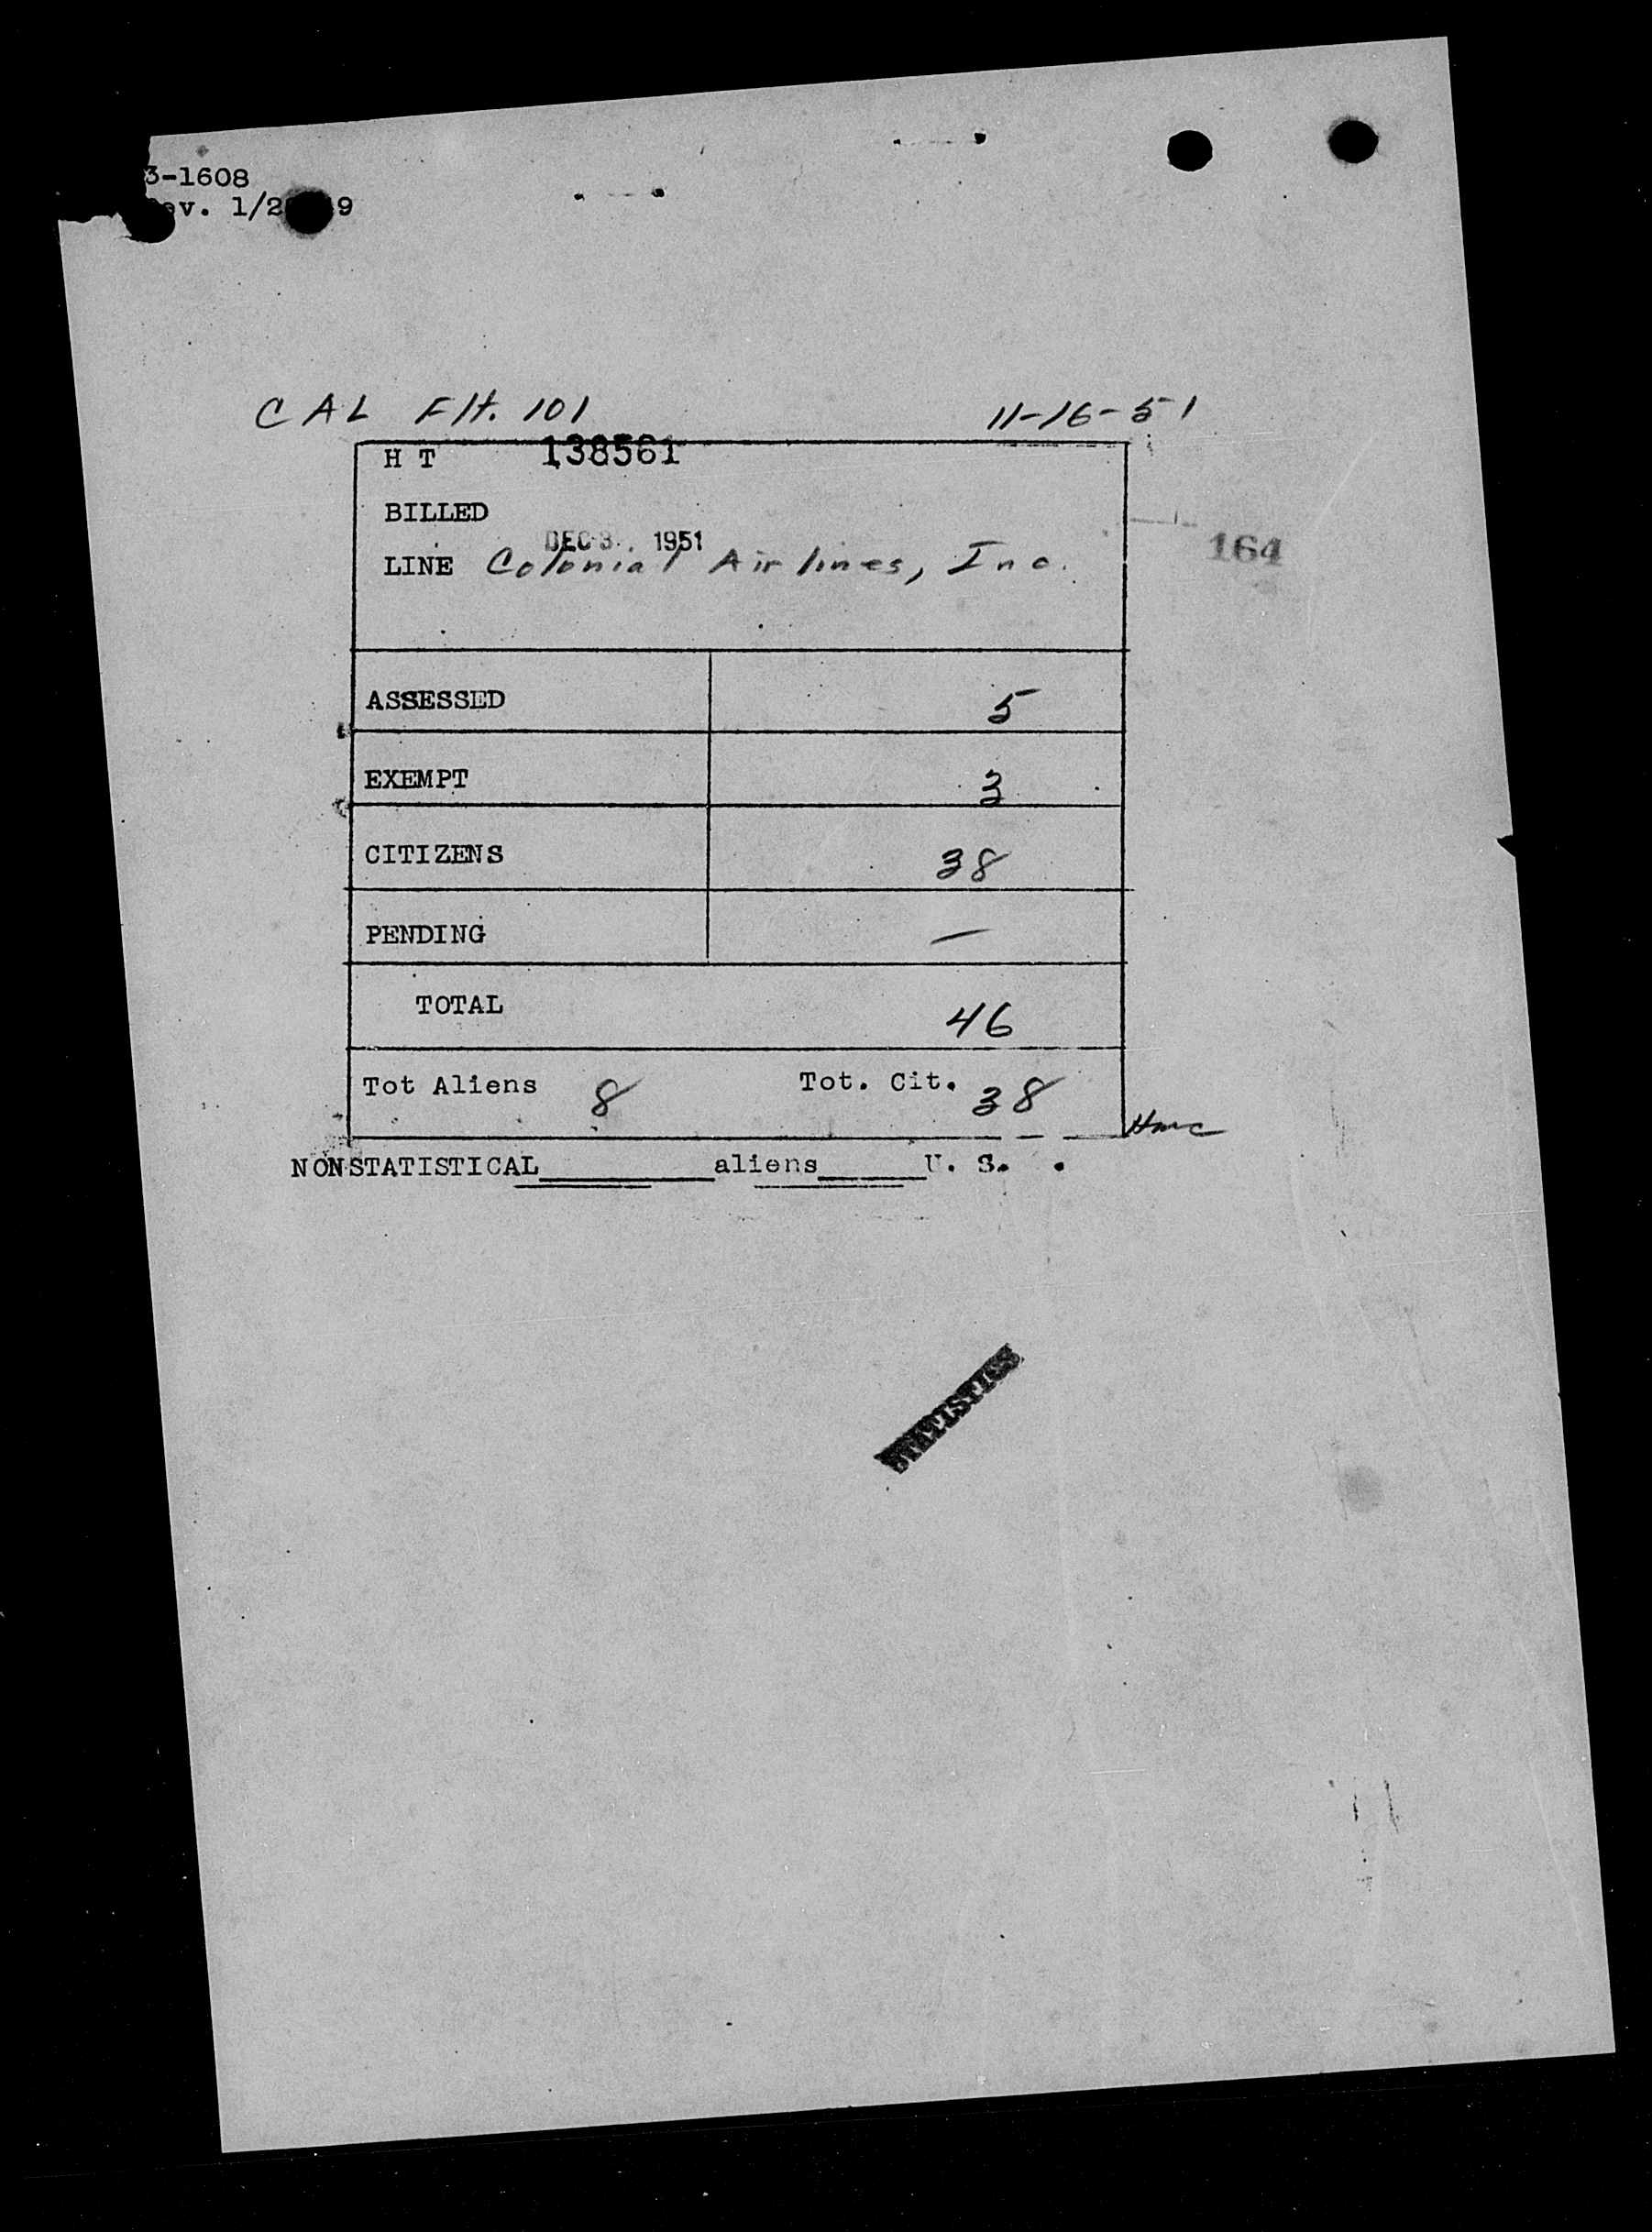 3-1608
1/2 9
CAL Flt. 101 11-16-51
H T 138561
BILLED
DEC 3, 1951
LINE Colonial Airlines, Inc.
164
ASSESSED 5
EXEMPT 3
CITIZENS 38
PENDING —
TOTAL 46
Tot Aliens 8 Tot. Cit. 38
NONSTATISTICAL aliens U. S.
STATISTICS